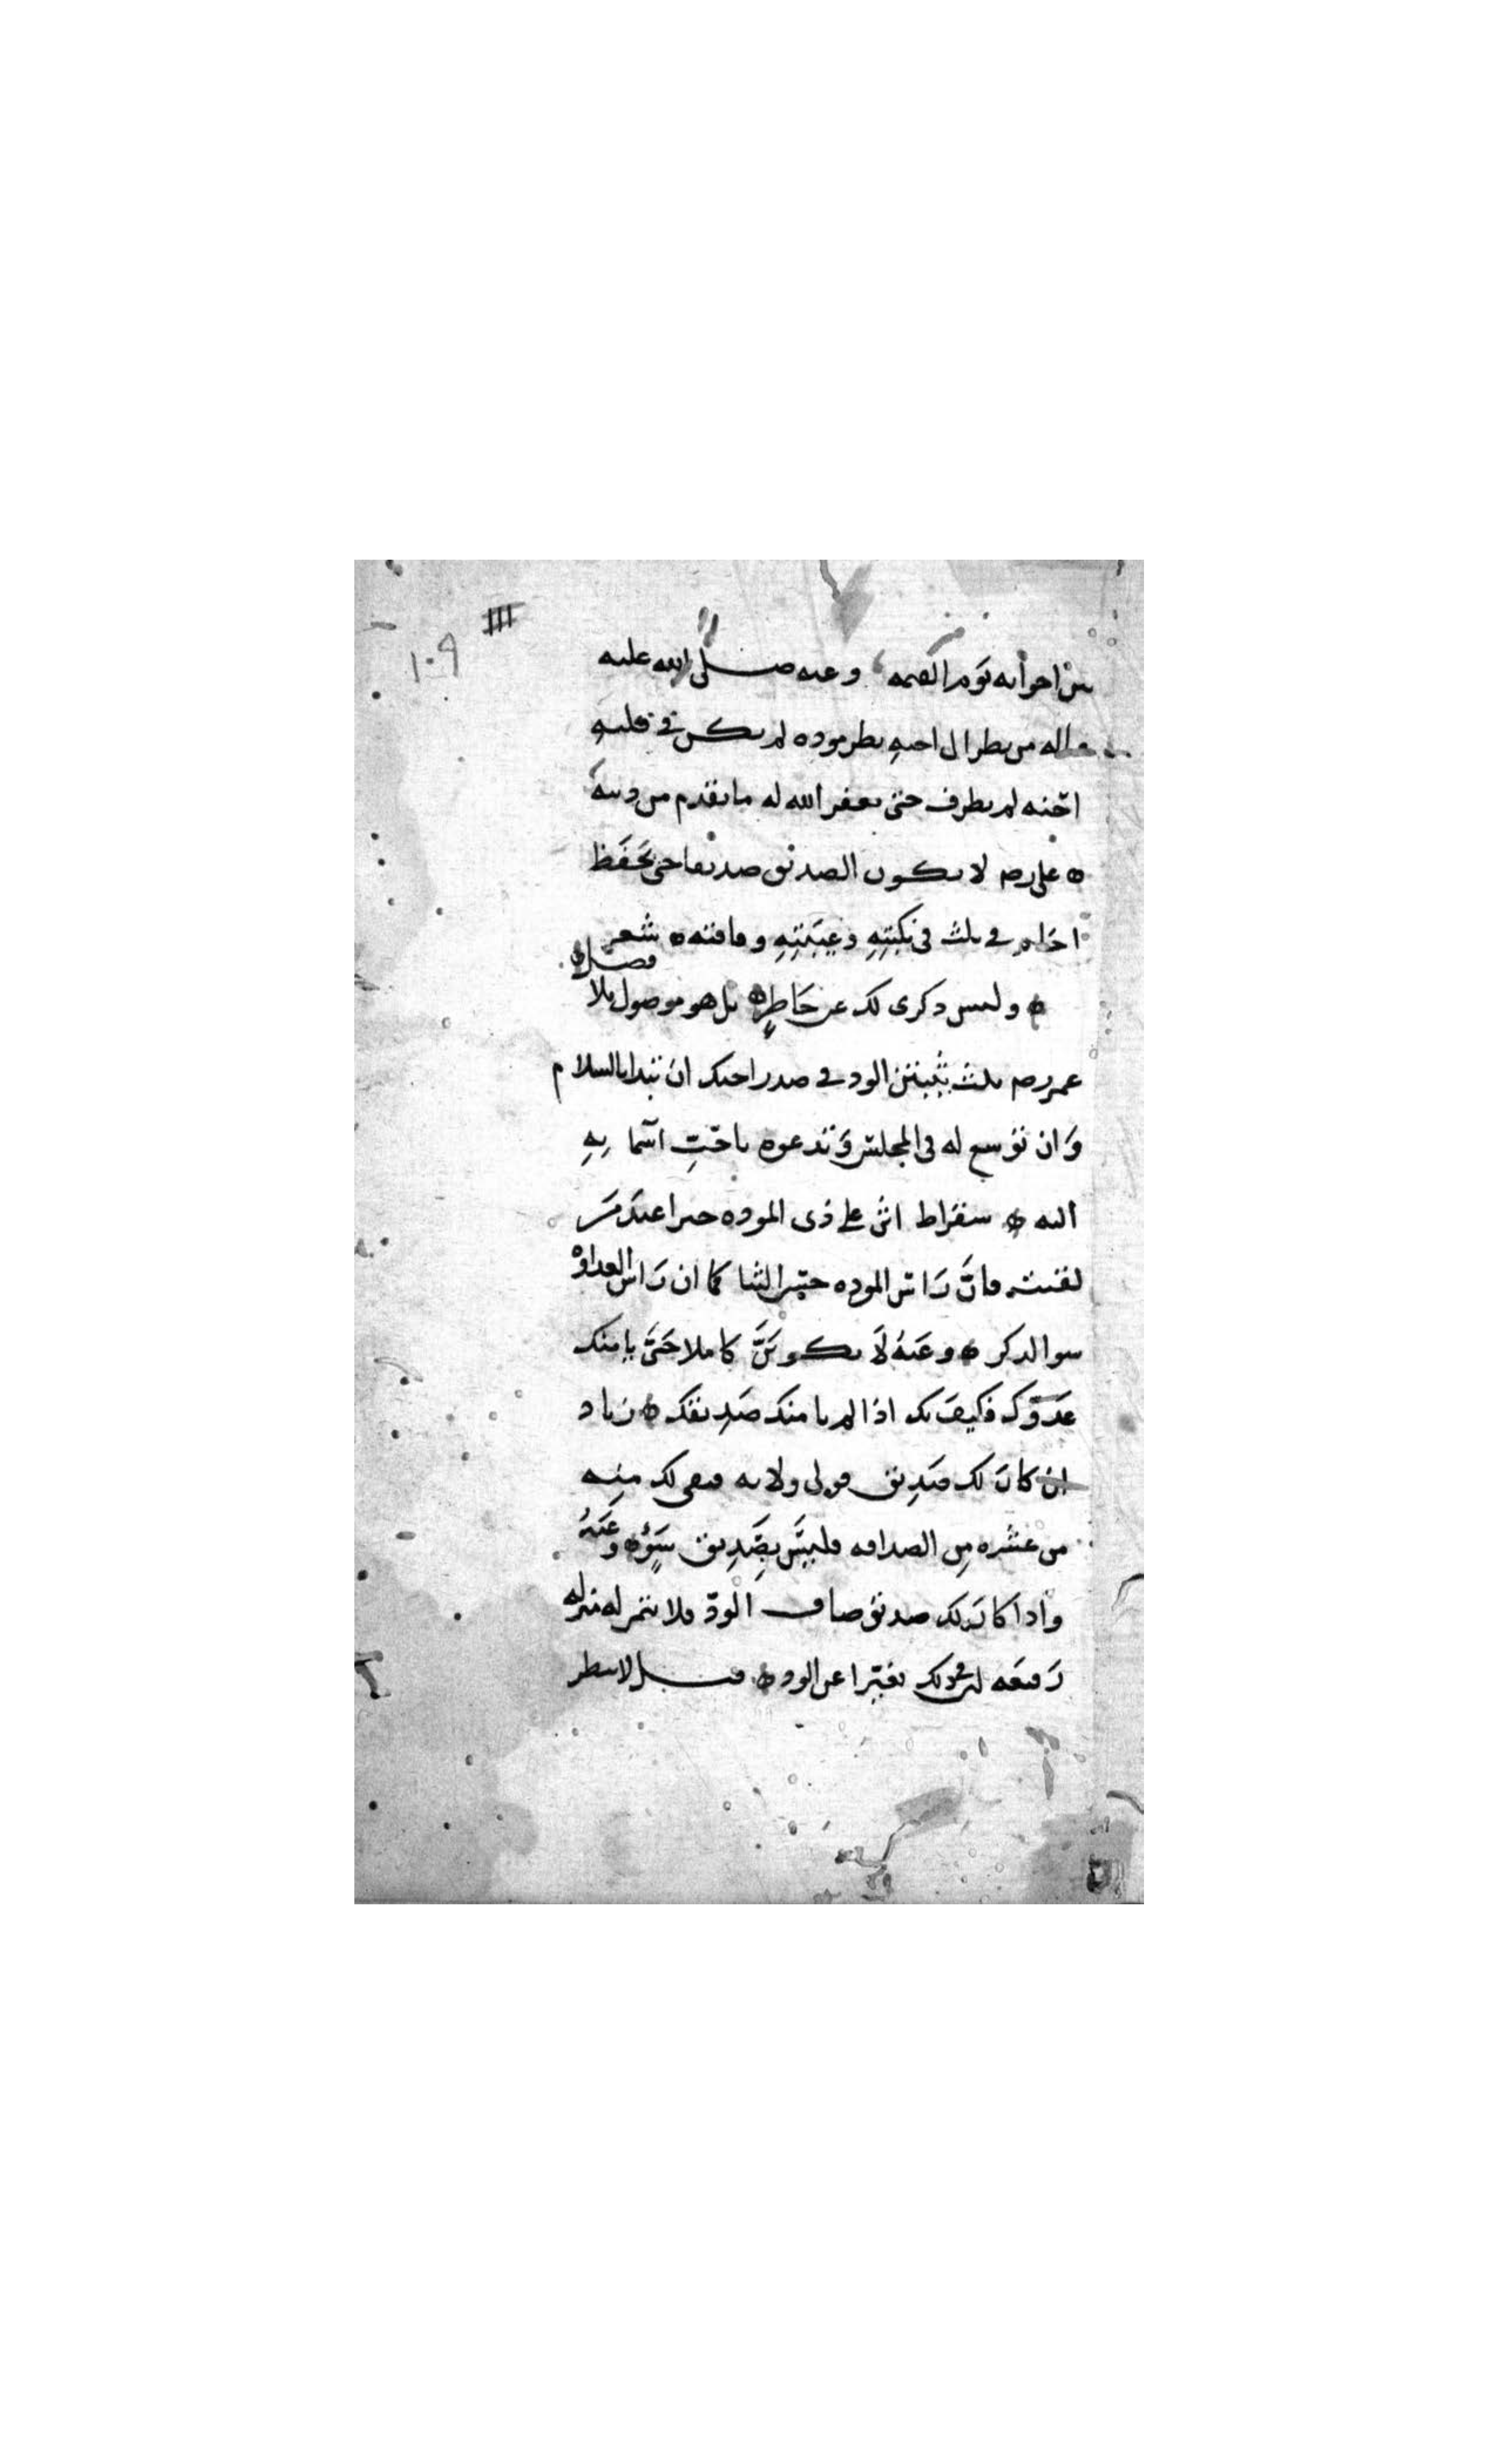 ١٠٩
بين اخوانه يوم القيمه وعنه صلى الله عليه
واله من نظر الى اخيه نظر موده لم يكن في قلبه
احنه لم يطرف حتى يغفر الله له ما تقدم من ذنبه
علي رضه لا يكون الصديق صديقا حتى يحفظ
اخاه في ثلث في نكبتِهِ وغيبتِهِ ووفاته شعر
وليس ذكرى لك عن خاطرٍ بل هو موصول بلا
فصل
عمر رضه ثلث يثبتن الود في صدر اخيك ان تبدا بالسلام
وَان توسع له في المجلس وَتدعوه باحبّ اسمايهِ
اليه سقراط اثن على ذى الموده خيرا عند مَن
لقيت فانّ رَاس الموده حسن الثنا كما ان رَاس العداوه
سوا لذكر وعَنهُ لَا تكوننَّ كاملا حَتَّى يامنك
عَدوّك فكيفَ بك اذا لم يامنك صَدِيقك زياد
ان كانَ لك صَدِيق فولى ولايه فبقى لك منِه
من عشره مِن الصداقه فليسَ بصَدِيق سَوْءٍ وعَنهُ
واذا كانَ لك صديق صافى الودّ فلا تتمن له منزله
رَفيعَه تغيّرا عن الود قيل لا تنظر